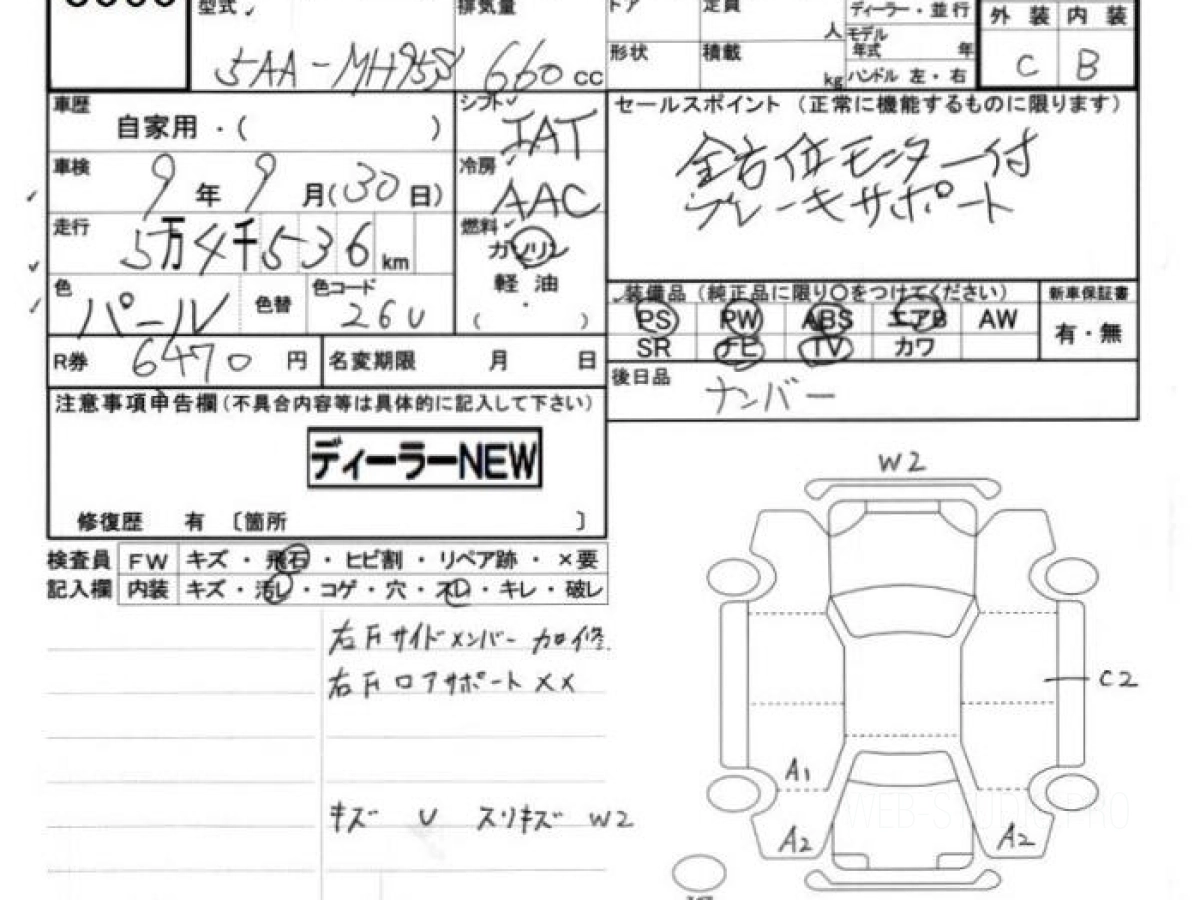 型式
排気量
ドア
定員
ディーラー・並行
外装 内装
5AA-MH95S 660 cc
人
モデル年式 年
形状
積載
kg
ハンドル 左・右
C B
車歴
自家用・( )
シフト
IAT
セールスポイント (正常に機能するものに限ります)
全方位モニター付
ブレーキサポート
車検
9年9月(30日)
冷房
AAC
走行
5万4千536km
燃料
ガソリン
軽油
( )
色
パール
色替
色コード
26U
装備品 (純正品に限り〇をつけてください)
新車保証書
PS PW ABS エアB AW
有・無
SR ナビ TV カワ
R券 6470円
名変期限 月 日
後日品
ナンバー
注意事項申告欄(不具合内容等は具体的に記入して下さい)
ディーラーNEW
修復歴 有 〔箇所 〕
検査員 FW キズ・飛石・ヒビ割・リペア跡・×要
記入欄 内装 キズ・汚レ・コゲ・穴・スレ・キレ・破レ
右Fサイドメンバー 加修
右Fロアサポート XX
キズ U スリキズ W2
W2
C2
A1
A2
A2
WEB-STUDIO.PRO